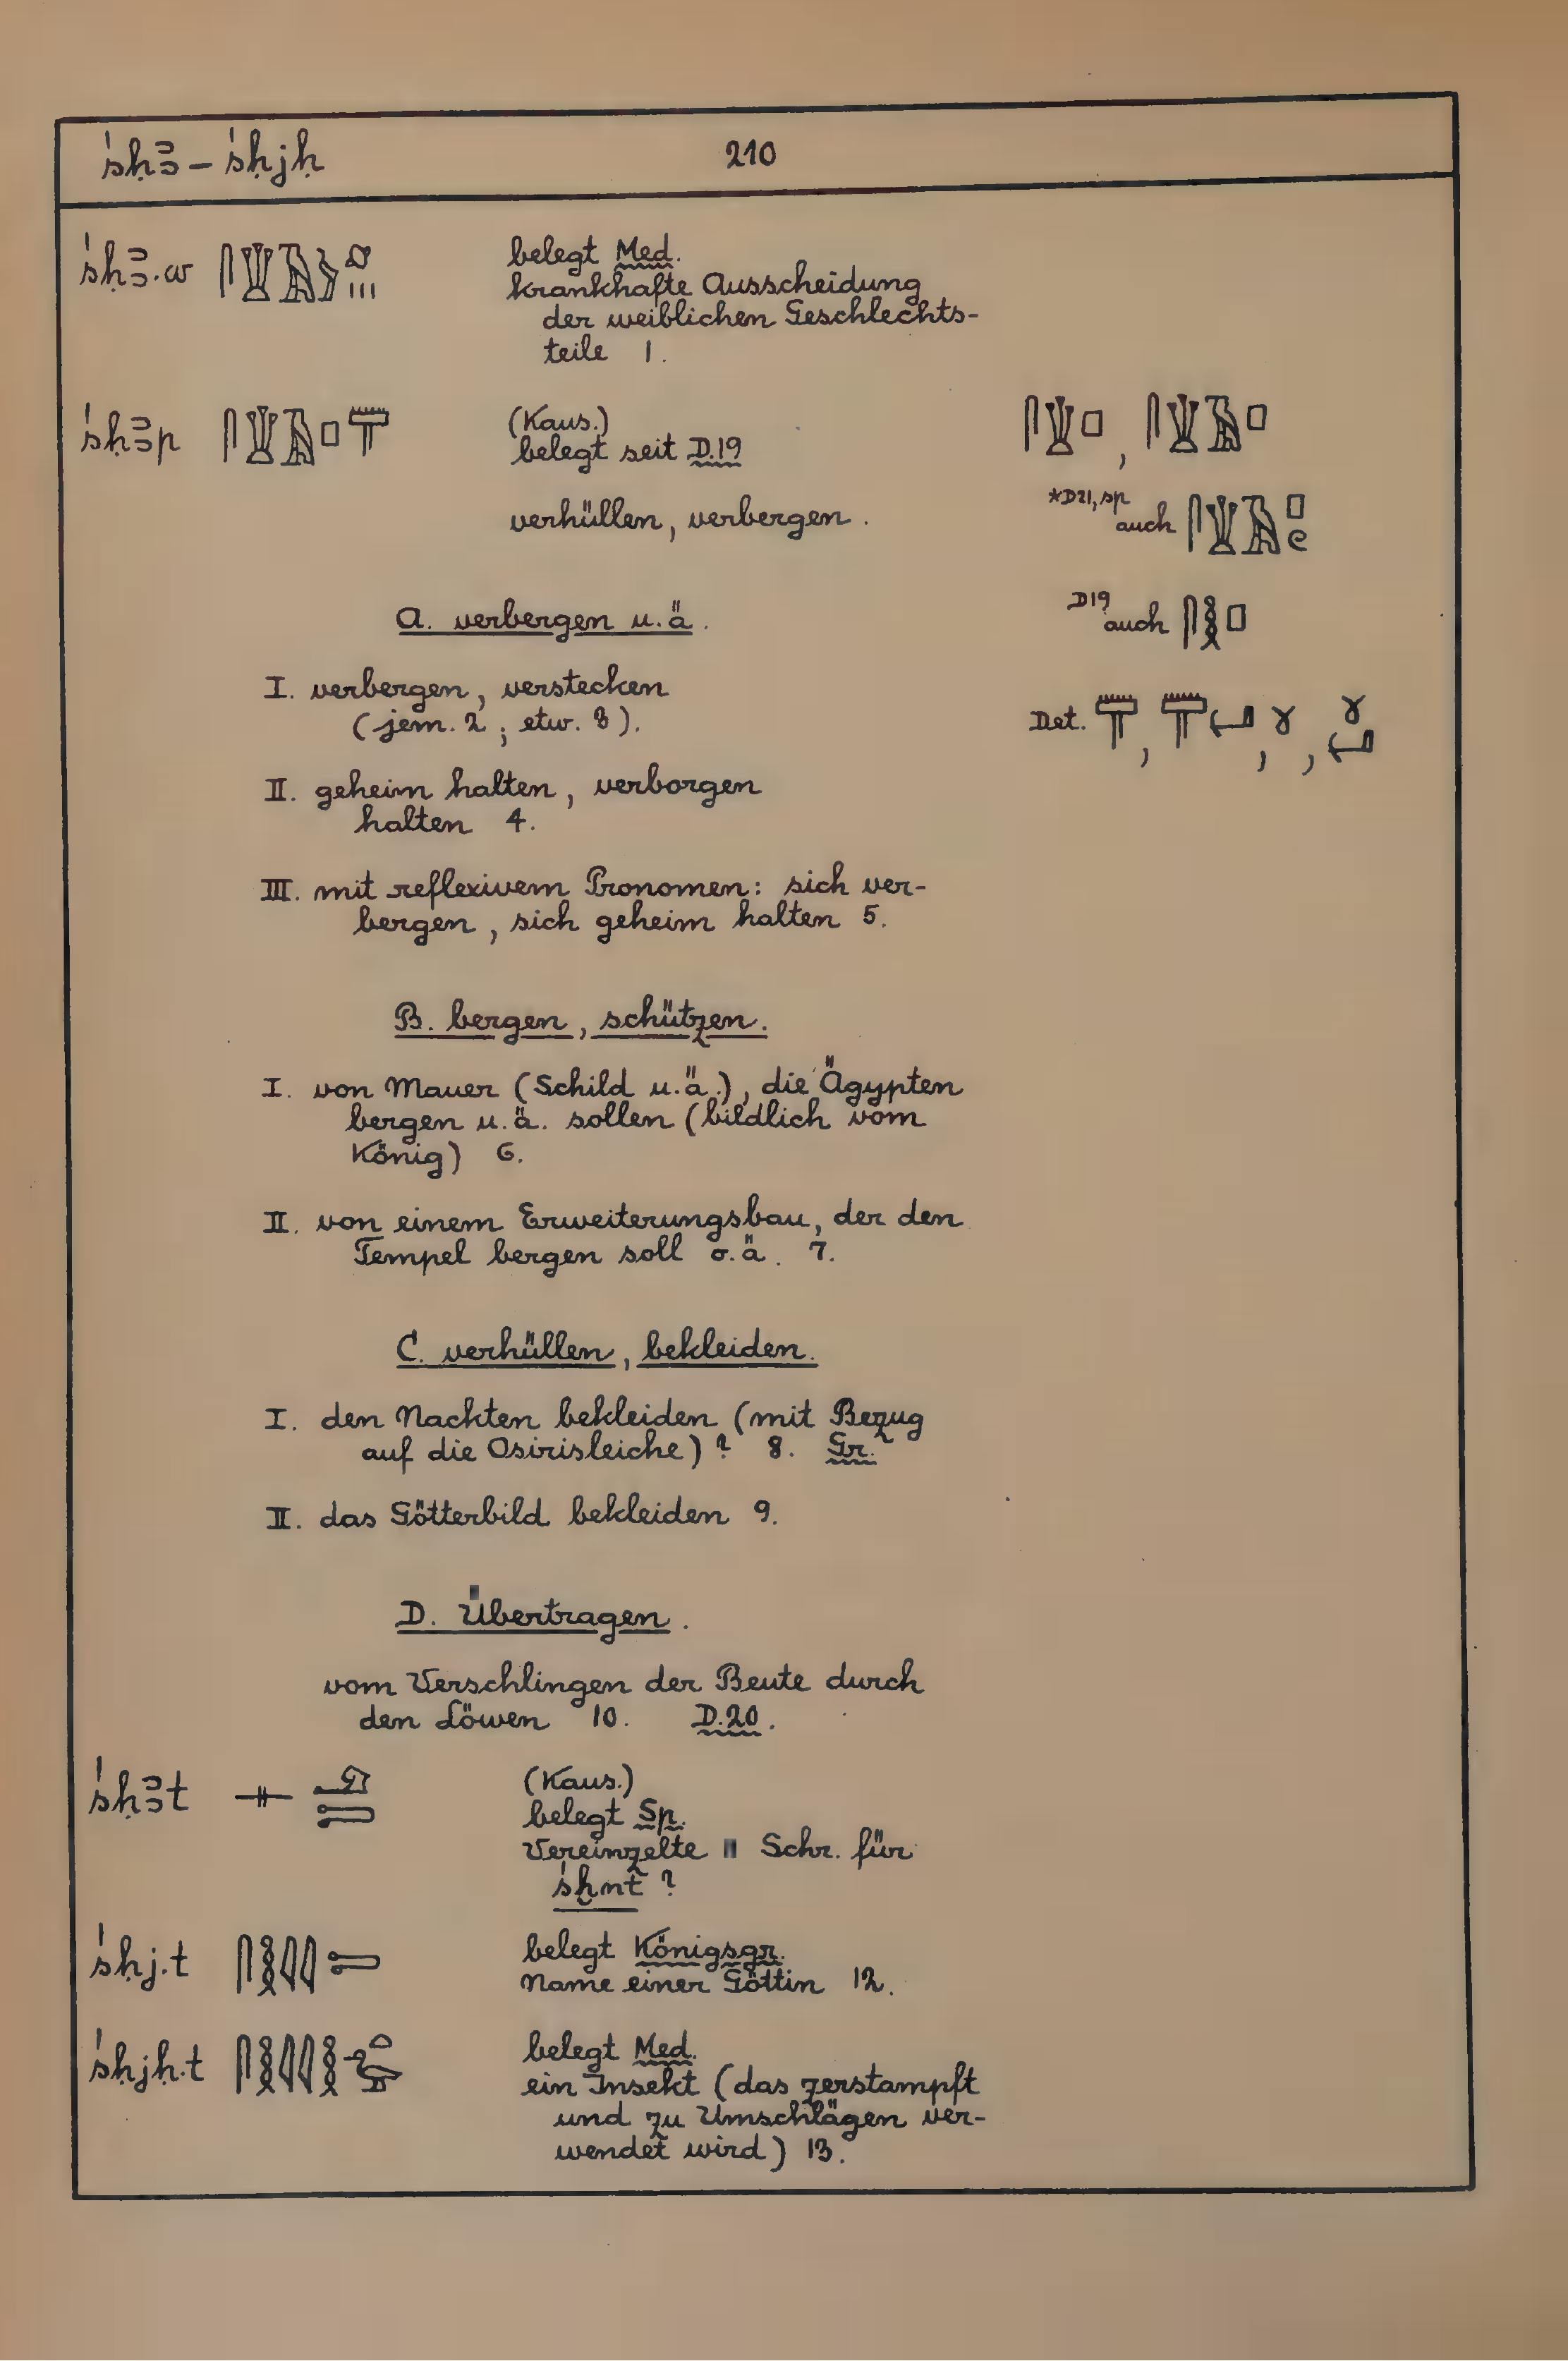 śḥꜣ – śḥjḥ 210
śḥꜣ.w 𓋴𓇉𓄿𓅱𓐎𓏥 belegt Med.
krankhafte Ausscheidung
der weiblichen Geschlechts-
teile 1.
śḥꜣp 𓋴𓇉𓄿𓊪𓋳 (Kaus.)
belegt seit D.19
verhüllen, verbergen.
𓋴𓇉𓊪, 𓋴𓇉𓄿𓊪
*D21, sp auch 𓋴𓇉𓄿𓊪𓏲
D19 auch 𓋴𓎛𓊪
Det.
A. verbergen u.ä.
I. verbergen, verstecken
(jem. 2; etw. 3).
II. geheim halten, verborgen
halten 4.
III. mit reflexivem Pronomen: sich ver-
bergen, sich geheim halten 5.
B. bergen, schützen.
I. von Mauer (Schild u.ä.), die Ägypten
bergen u.ä. sollen (bildlich vom
König) 6.
II. von einem Erweiterungsbau, der den
Tempel bergen soll o.ä. 7.
C. verhüllen, bekleiden.
I. den Nackten bekleiden (mit Bezug
auf die Osirisleiche)? 8. Gr.
II. das Götterbild bekleiden 9.
D. Übertragen.
vom Verschlingen der Beute durch
den Löwen 10. D.20.
śḥꜣt (Kaus.)
belegt Sp.
Vereinzelte Schr. für
śḫnt ?
śḥj.t 𓋴𓎛𓇋𓇋𓍿 belegt Königsgr.
Name einer Göttin 12.
śḥjḥ.t 𓋴𓎛𓇋𓇋𓎛𓏏𓅬 belegt Med.
ein Insekt (das zerstampft
und zu Umschlägen ver-
wendet wird) 13.